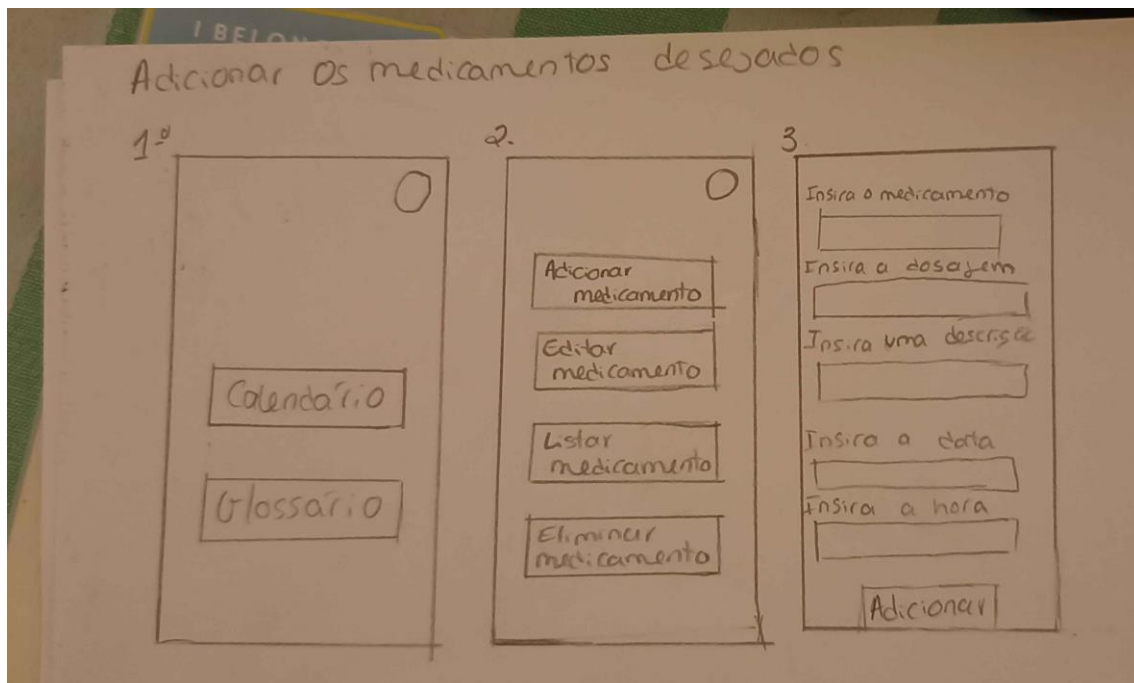 I BELON
Adicionar os medicamentos desejados
1º
2.
3
Calendário
Glossário
Adicionar
medicamento
Editar
medicamento
Listar
medicamento
Eliminar
medicamento
Insira o medicamento
Insira a dosagem
Insira uma
Insira a data
Insira a hora
Adicionar